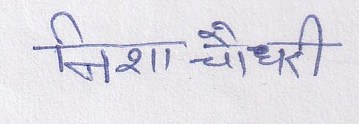 निशा चौधरी